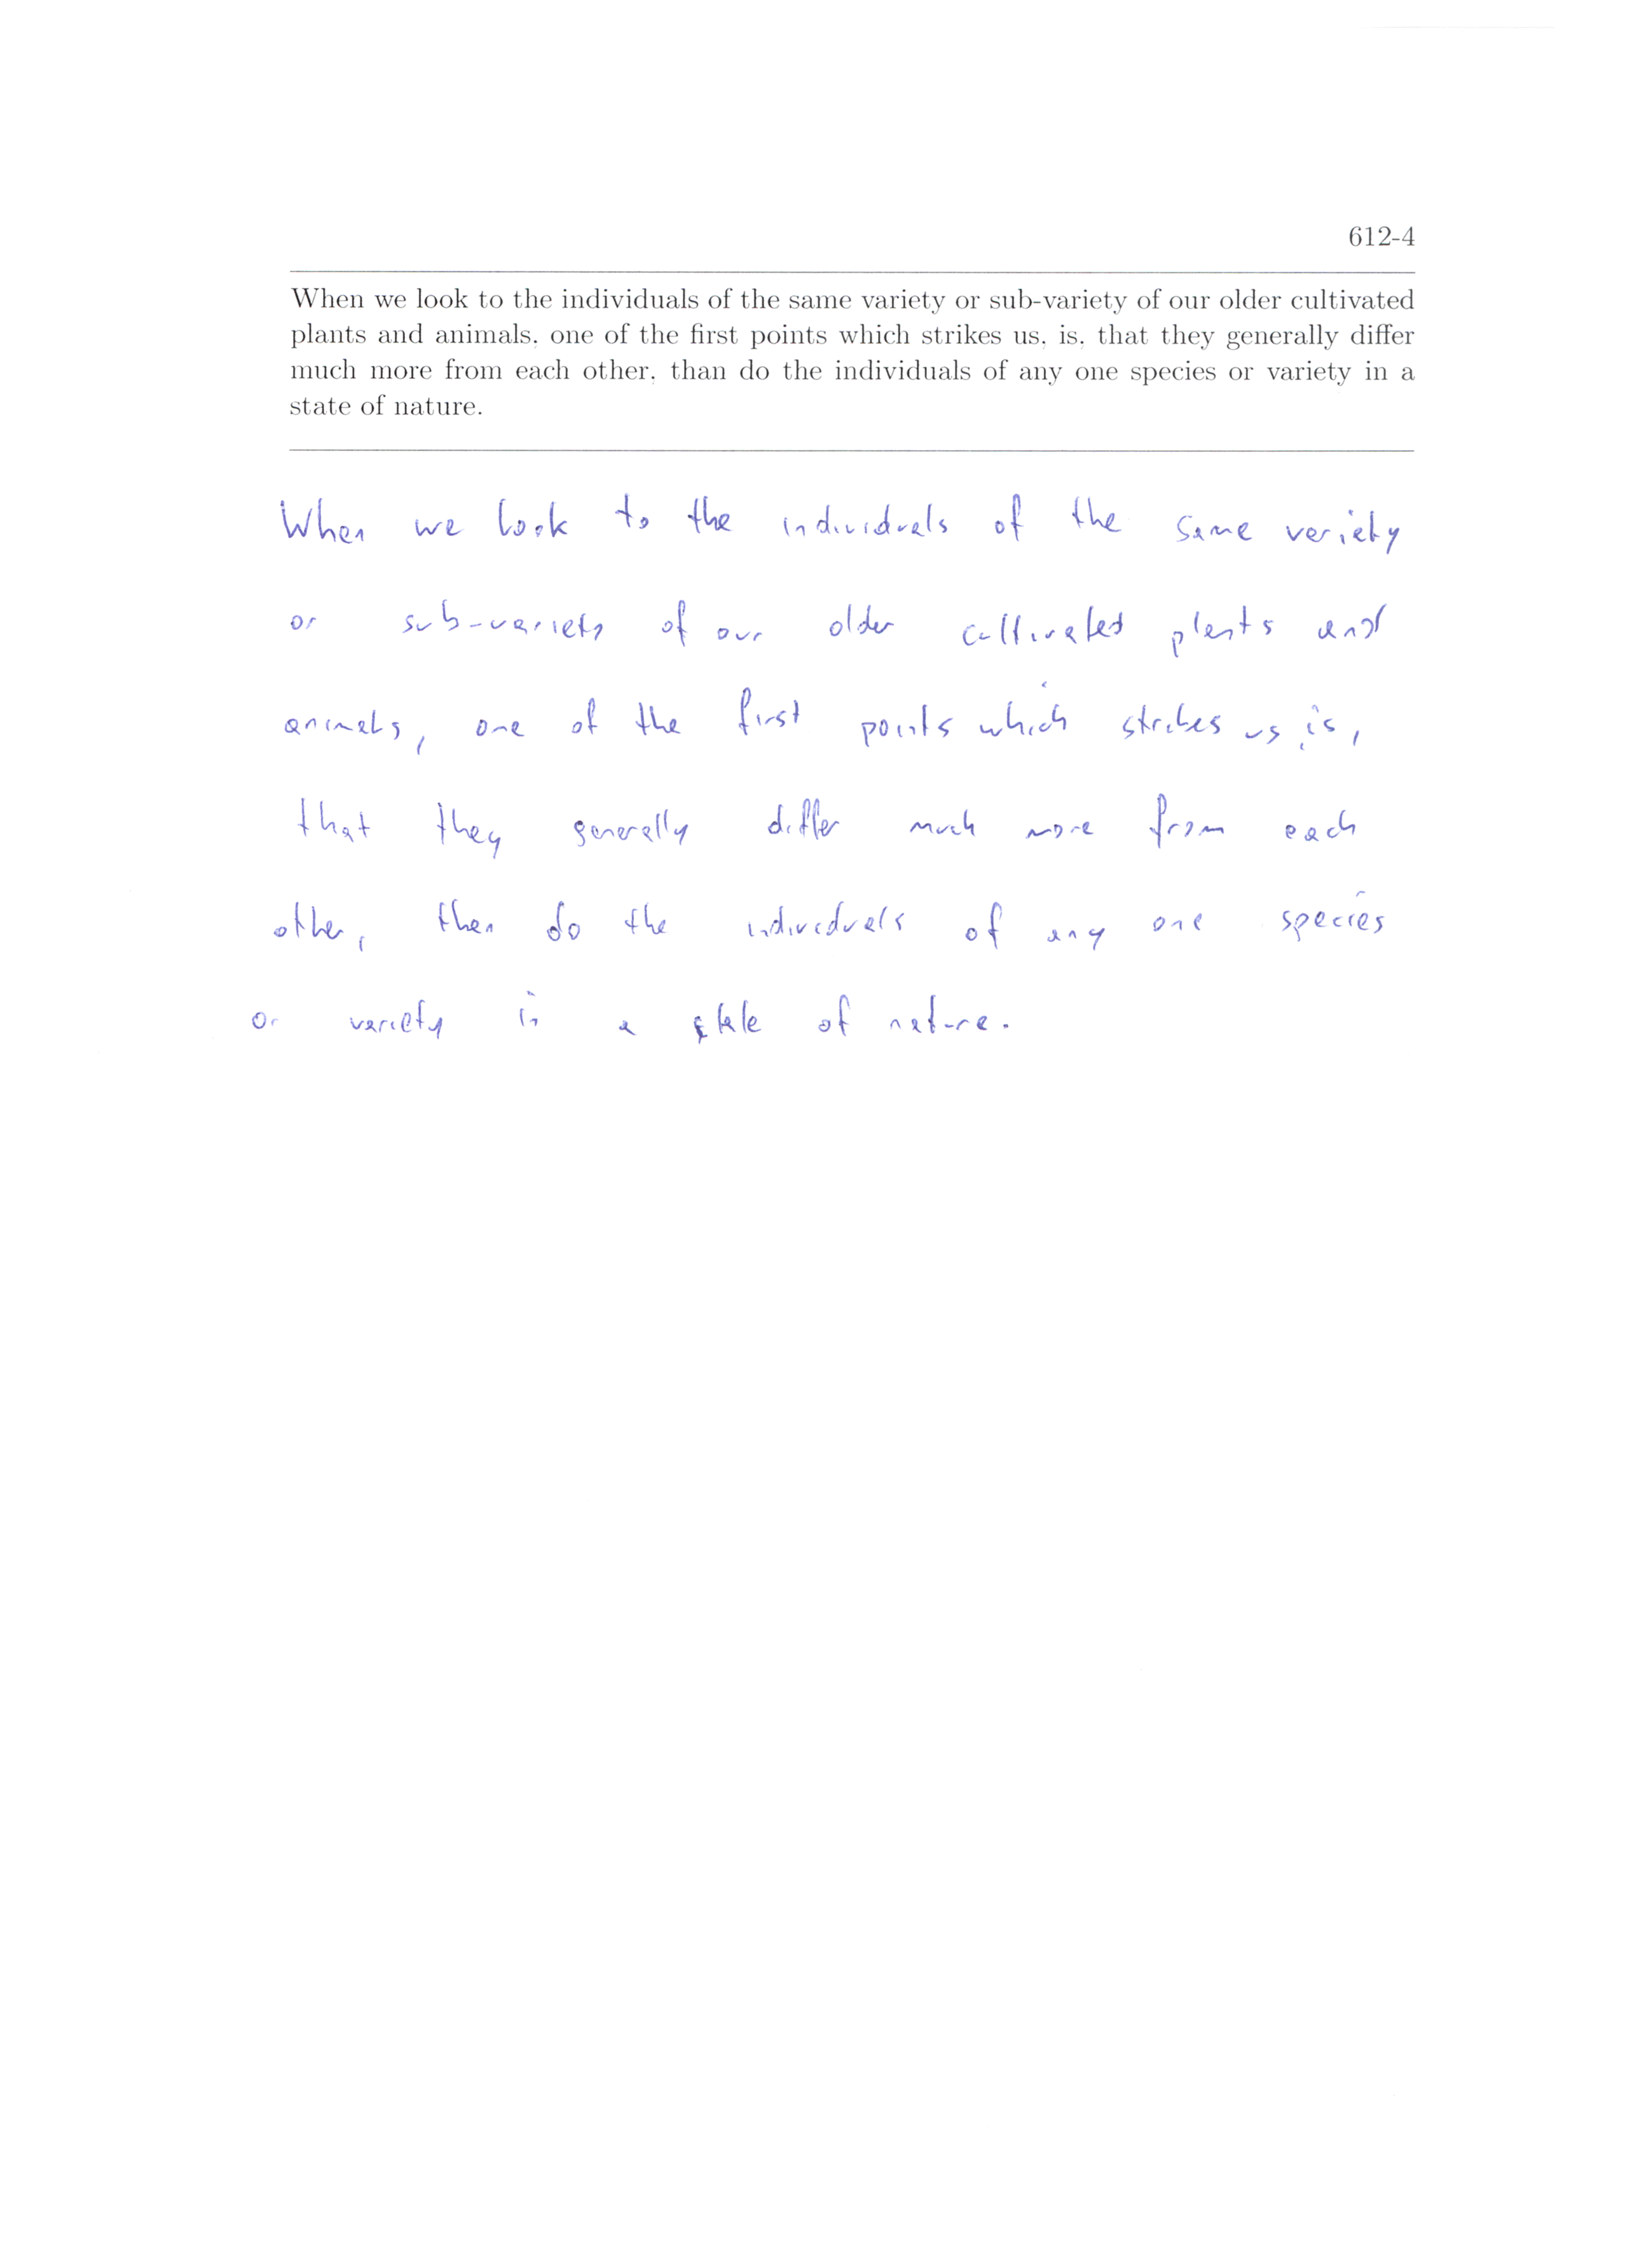 612-4
When we look to the individuals of the same variety or sub-variety of our older cultivated
plants and animals, one of the first points which strikes us, is, that they generally differ
much more from each other, than do the individuals of any one species or variety in a
state of nature.
When we look to the individuals of the same variety
or sub-variety of our older cultivated plants and
animals, one of the first points which strikes us, is,
that they generally differ much more from each
other, than do the individuals of any one species
or variety in a state of nature.